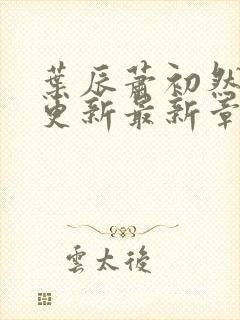 葉辰蕭初然
更新最新章
雲太後